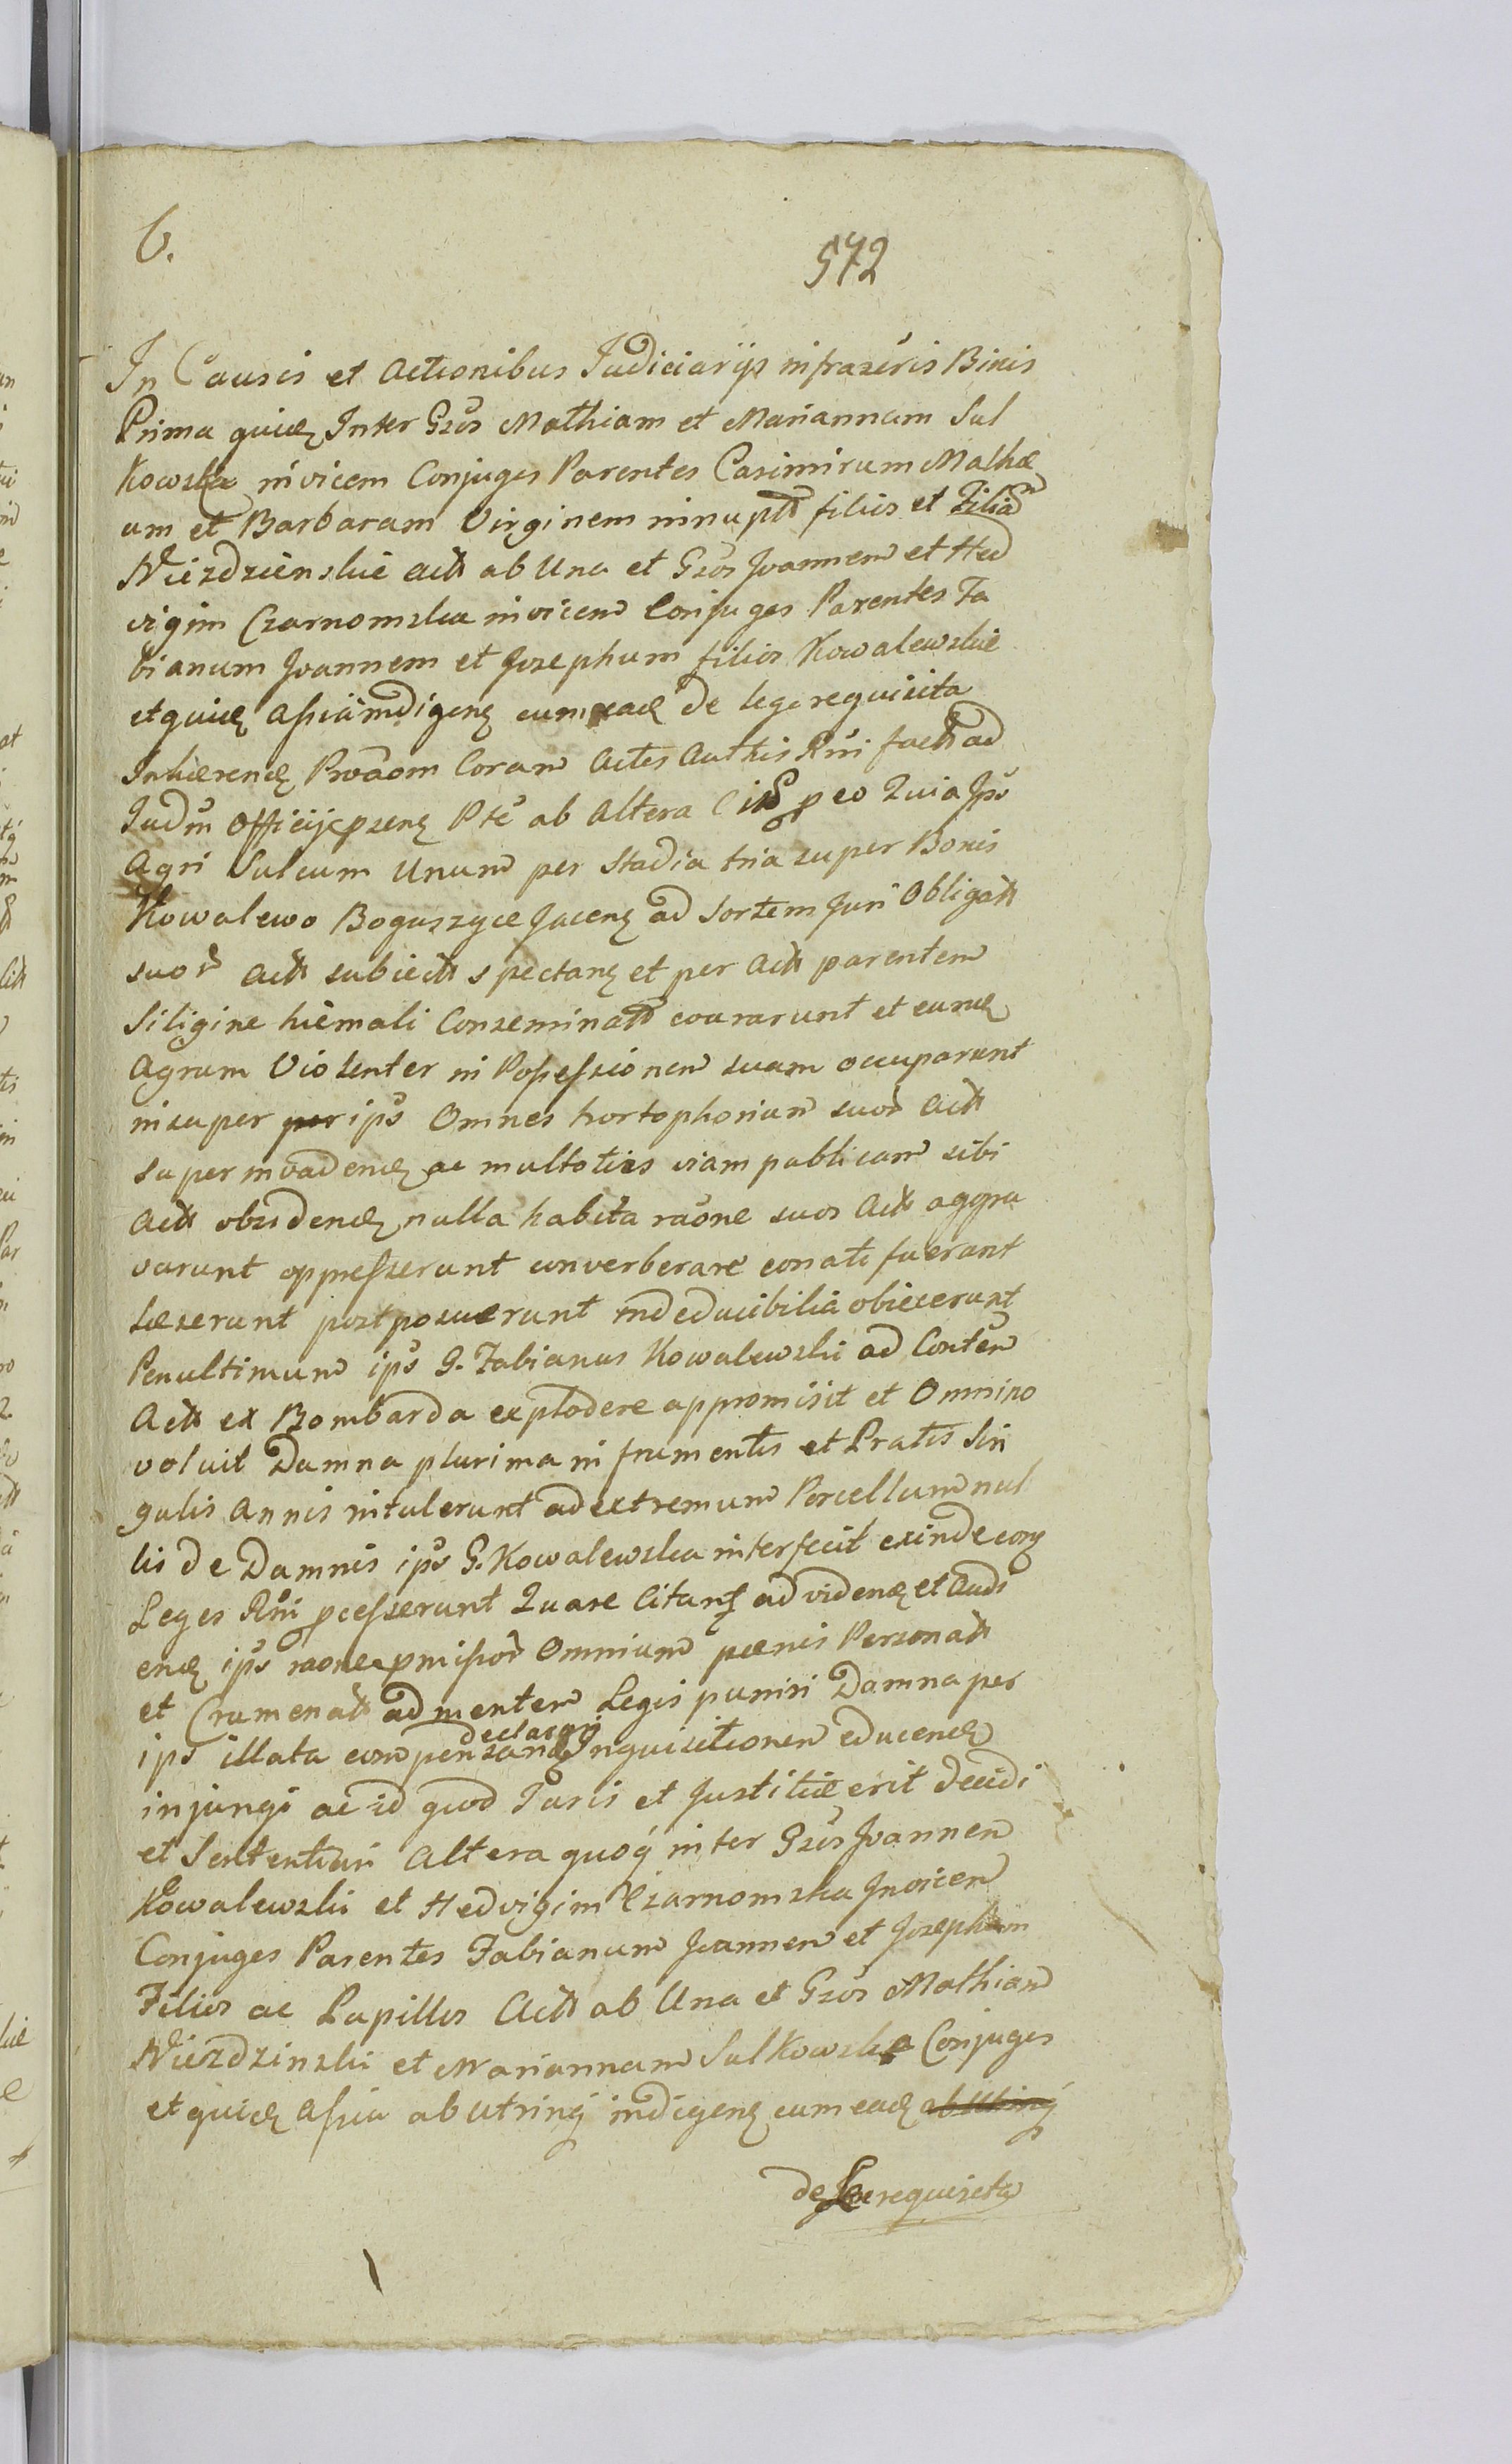 6.
572
In Causis et Actionibus Judiciarijs infrascris Binis
Prima quidē Inter Gsos Mathiam et Mariannam Sul
kowska invicem Conjuges Parentes Casimirum Mathæ
um et Barbaram Virginem innuptā filios et Filiam
Niezdzienskie Actt ab Una et Gsos Joannem et Hed
vigim Czarnomska invicem Conjuges Parentes Fa
bianum Joannem et Josephum filios Kowalewskie
et quidē Assia indigenē cum eadē de lege requisita
Inhærendē Provaom Coram Actis Authis Rni factt ad
Judm Officij psenē Pte ab Altera Citt p eo Quia Ips
Agri Sulcum Unum per Stadia tria super Bonis
Kowalewo Boguszyce Jacenē ad Sortem Juri Obligatt
suor Actt subiectt spectanē et per Actt parentem
Siligine hiemali Conseminatt coararunt et eundē
Agrum Violenter in Possessionem suam occuparunt
insuper per ips Omnes hortophorium suor Actt
super invadendē ac multoties viam publicam sibi
Actt obsidendē nulla habita raone suos Actt aggra
varunt oppresserunt converberare conati fuerant
læserunt postposuerunt indeducibilia obiecerunt
Penultimum ips G. Fabianus Kowalewski ad Contem
Actt ex Bombarda explodere appromisit et Omnino
voluit Damna plurima in frumentis et Pratis Sin
gulis Annis intulerunt ad extremum Porcellum nul
lis de Damnis ips G. Kowalewska interfecit exinde conē
Leges Rni pcesserunt Quare Citantr ad videndē et Audi
endē ips raone pmissor Omnium pœnis Personatt
et Crumenatt ad mentem Legis puniri Damna per
declarari
ips illata compensandē Inquisitionem educendē
injungi ac id quod Juris et Justitiæ erit decidi
et Sententiari Altera quoq inter Gsos Joannem
Kowalewski et Hedvigim Czarnomska Invicem
Conjuges Parentes Fabianum Joannem et Josephum
Filios ac Pupillos Actt ab Una et Gsos Mathiam
Niezdzinski et Mariannam Sulkowska Conjuges
et quidē Assia ab utrinq indigenē cum eadē ab Utrinq
de Lege requisita